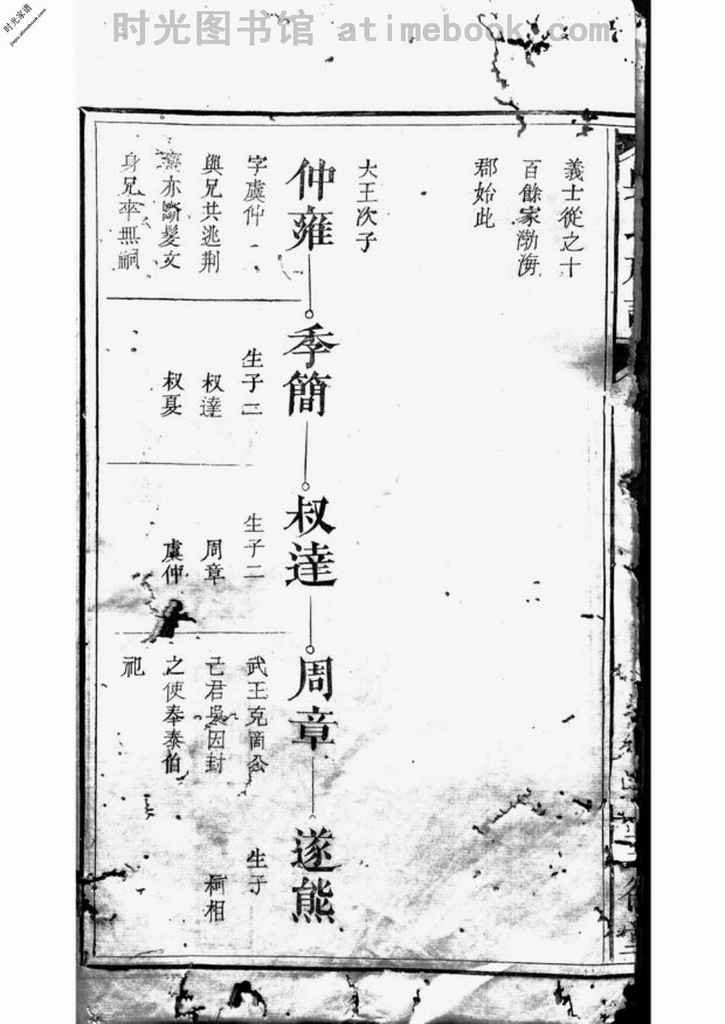 时光图书馆 atimebook.com
时光家谱
義士從之十
百餘家渤海
郡始此
大王次子
仲雍
字虞仲
與兄共逃荆
蠻亦斷髮文
身兄卒無嗣
季簡
生子二
叔達
叔夏
叔達
生子二
周章
虞仲
周章
武王克商公
已君吳因封
之使奉泰伯
祀
遂熊
生子
柯相